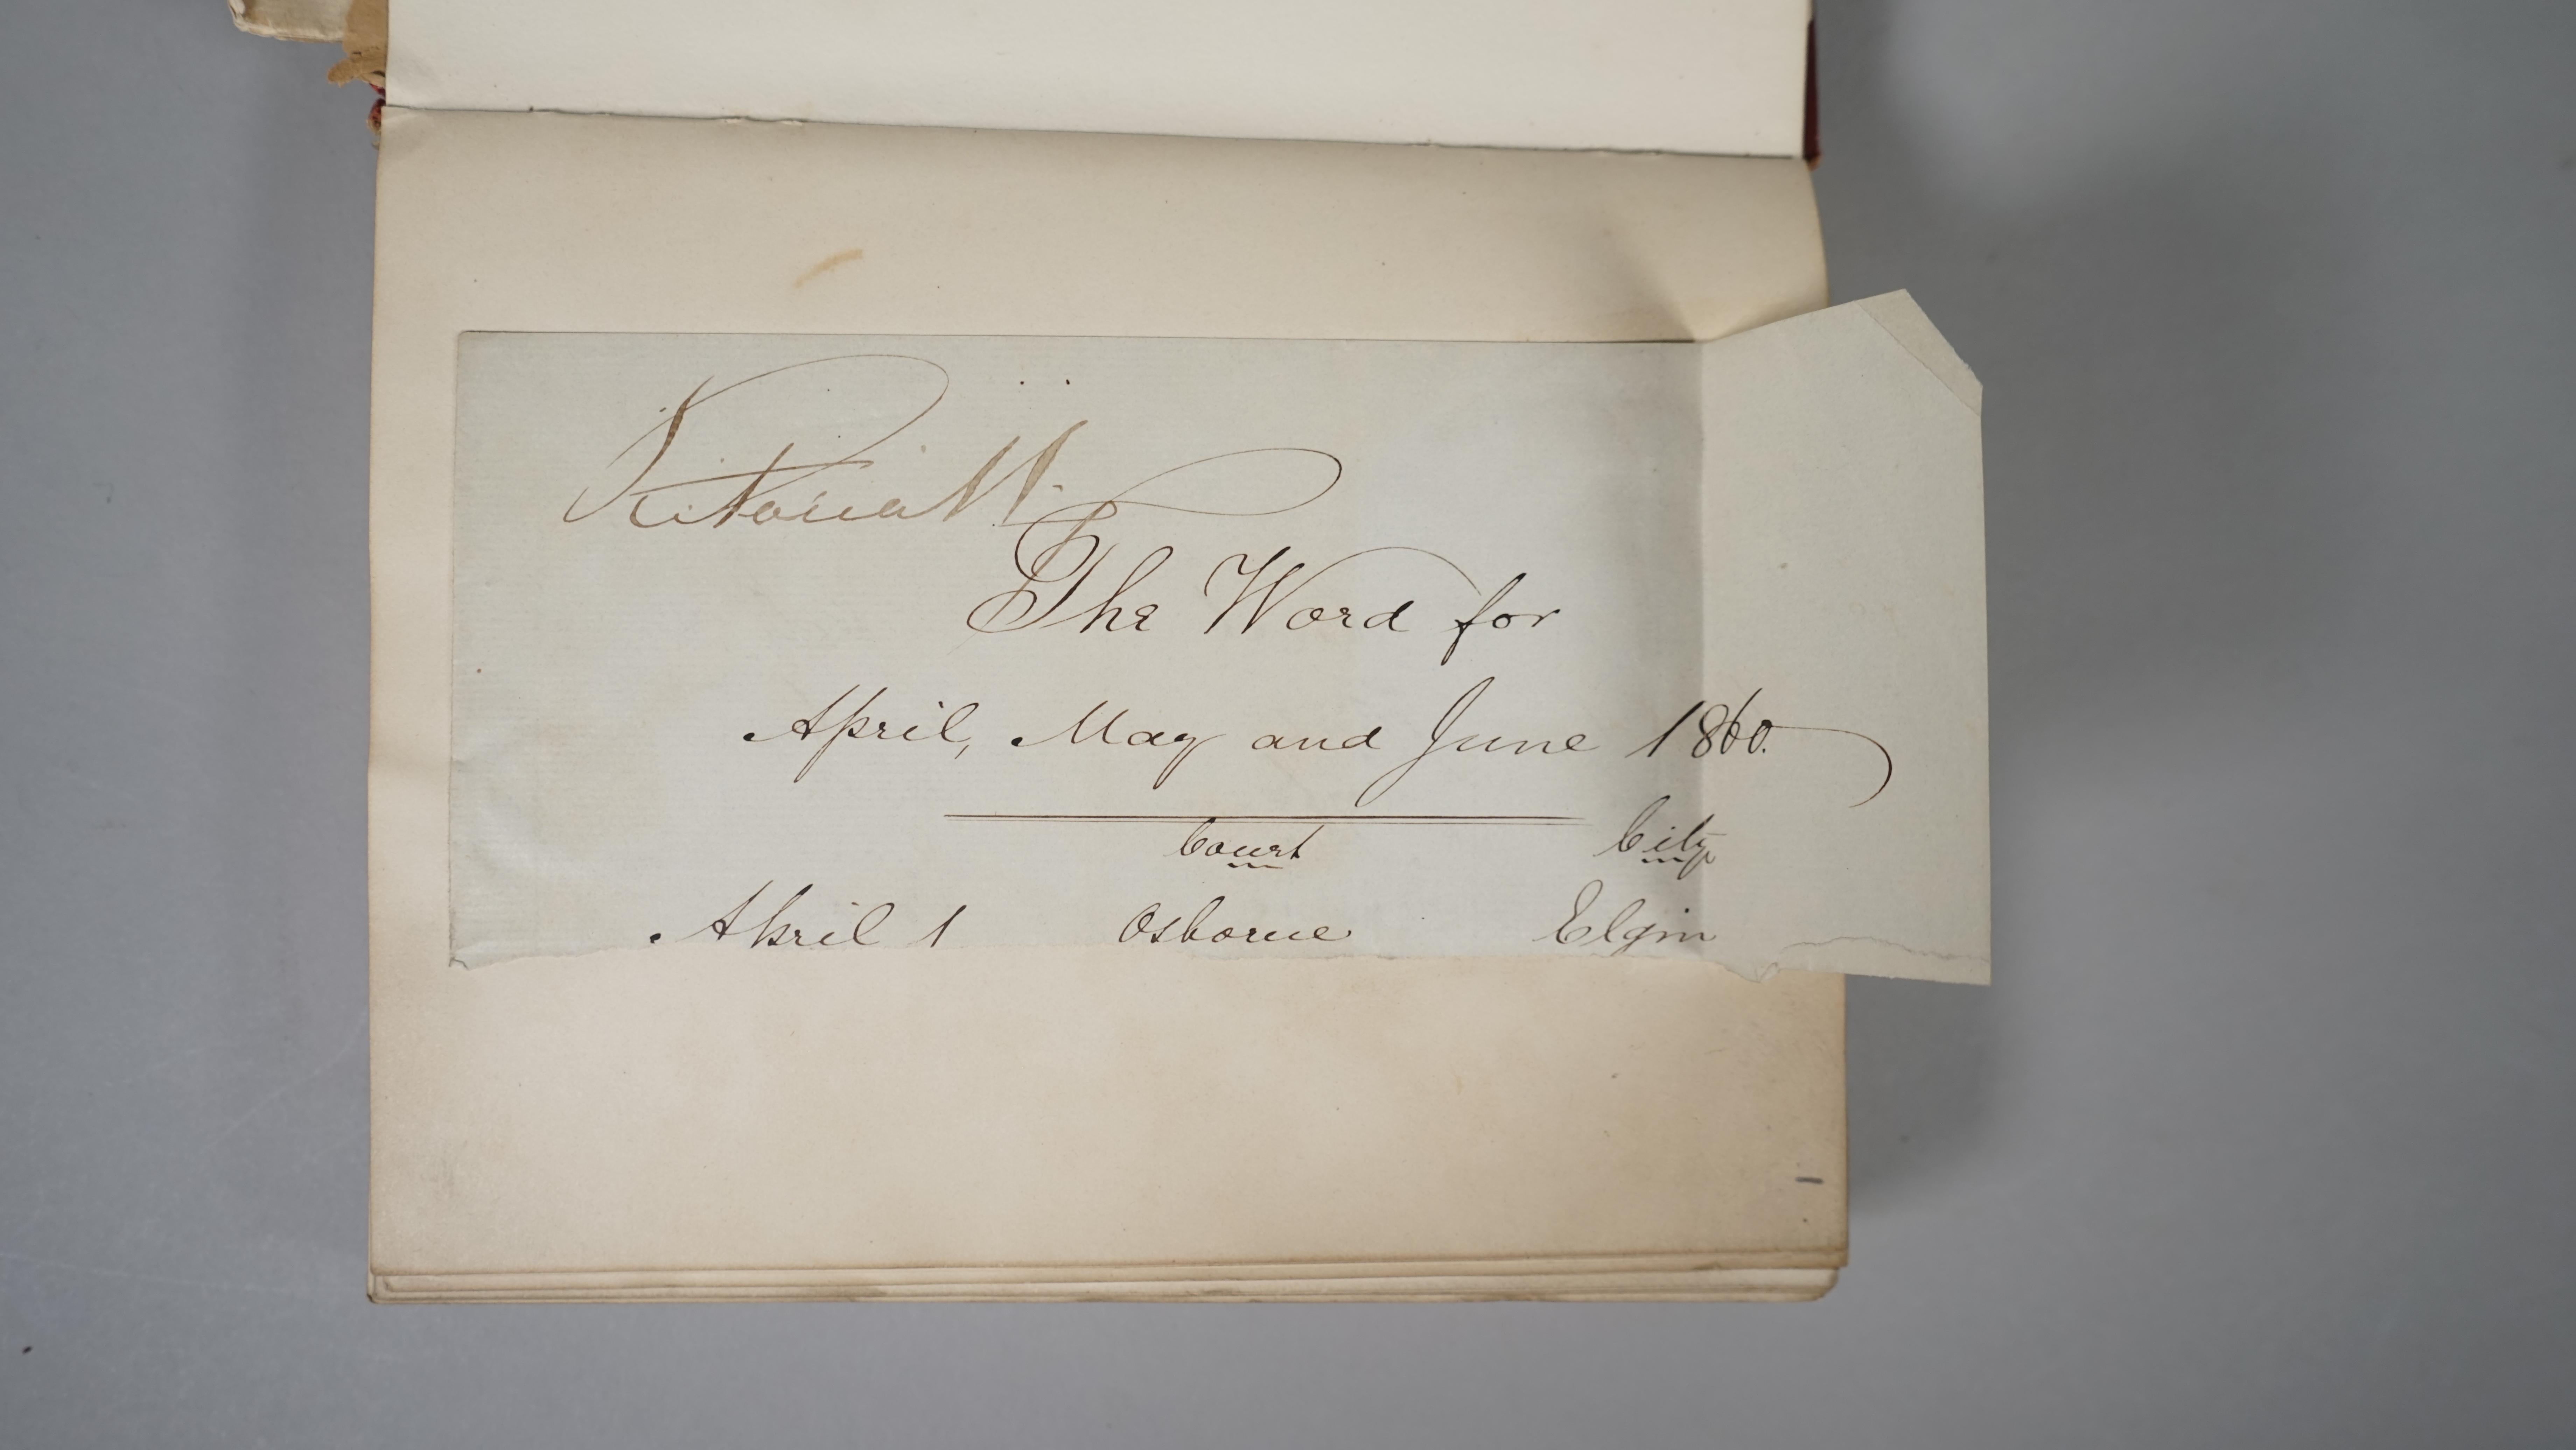 Victoria R
The Word for
April, May and June 1860.
Court City
April 1 Osborne Elgin